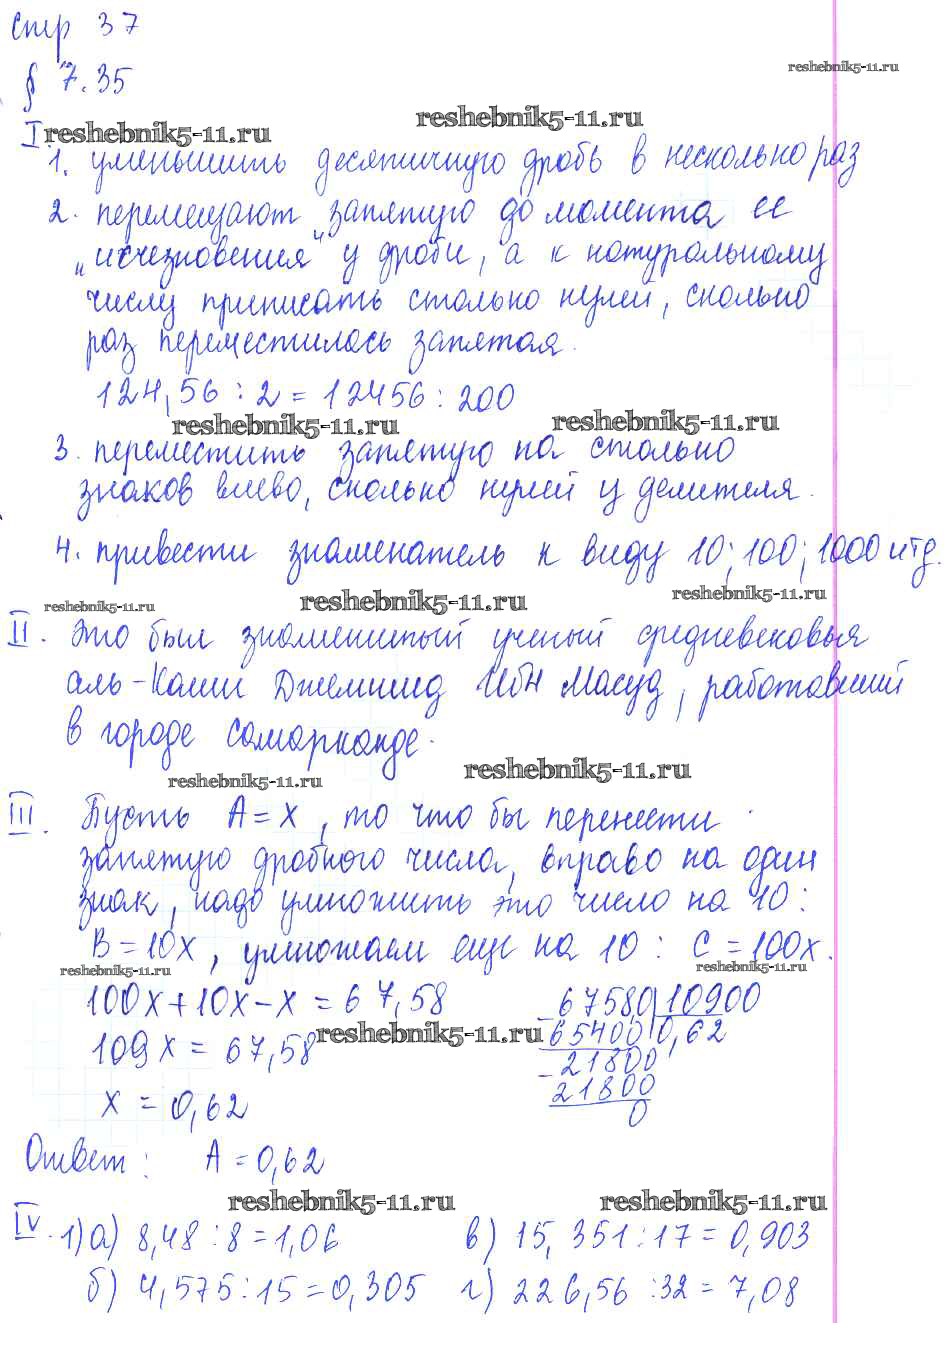 стр 37
reshebnik5-11.ru
§ 7.35
reshebnik5-11.ru
reshebnik5-11.ru
I
1. уменьшить десятичную дробь в несколько раз
2. перемещают запятую до момента ее
„исчезновения“ у дроби, а к натуральному
числу приписать столько нулей, сколько
раз переместилась запятая.
124,56 : 2 = 12456 : 200
reshebnik5-11.ru reshebnik5-11.ru
3. переместить запятую на столько
знаков влево, сколько нулей у делителя.
4. привести знаменатель к виду 10; 100; 1000 итд.
reshebnik5-11.ru reshebnik5-11.ru reshebnik5-11.ru
II. Это был знаменитый ученый средневековья
аль-Каши Джемшид Ибн Масуд, работавший
в городе Самарканде.
reshebnik5-11.ru reshebnik5-11.ru
III. Пусть A = x, то что бы перенести
запятую дробного числа, вправо на один
знак, надо умножить это число на 10 :
B = 10x, умножаем еще на 10 : C = 100x.
reshebnik5-11.ru reshebnik5-11.ru
100x + 10x - x = 67,58 67580 | 10900
reshebnik5-11.ru
109x = 67,58 65400 0,62
21800
x = 0,62 21800
0
Ответ: A = 0,62
reshebnik5-11.ru reshebnik5-11.ru
IV. 1) а) 8,48 : 8 = 1,06 в) 15,351 : 17 = 0,903
б) 4,575 : 15 = 0,305 г) 226,56 : 32 = 7,08